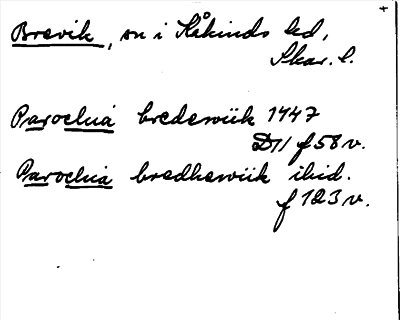 +
Brevik, sn i Kåkinds hd,
Skar. l.
Parochia bredewiik 1447
D11 f 58 v.
Parochia bredhewiik ibid.
f 123 v.